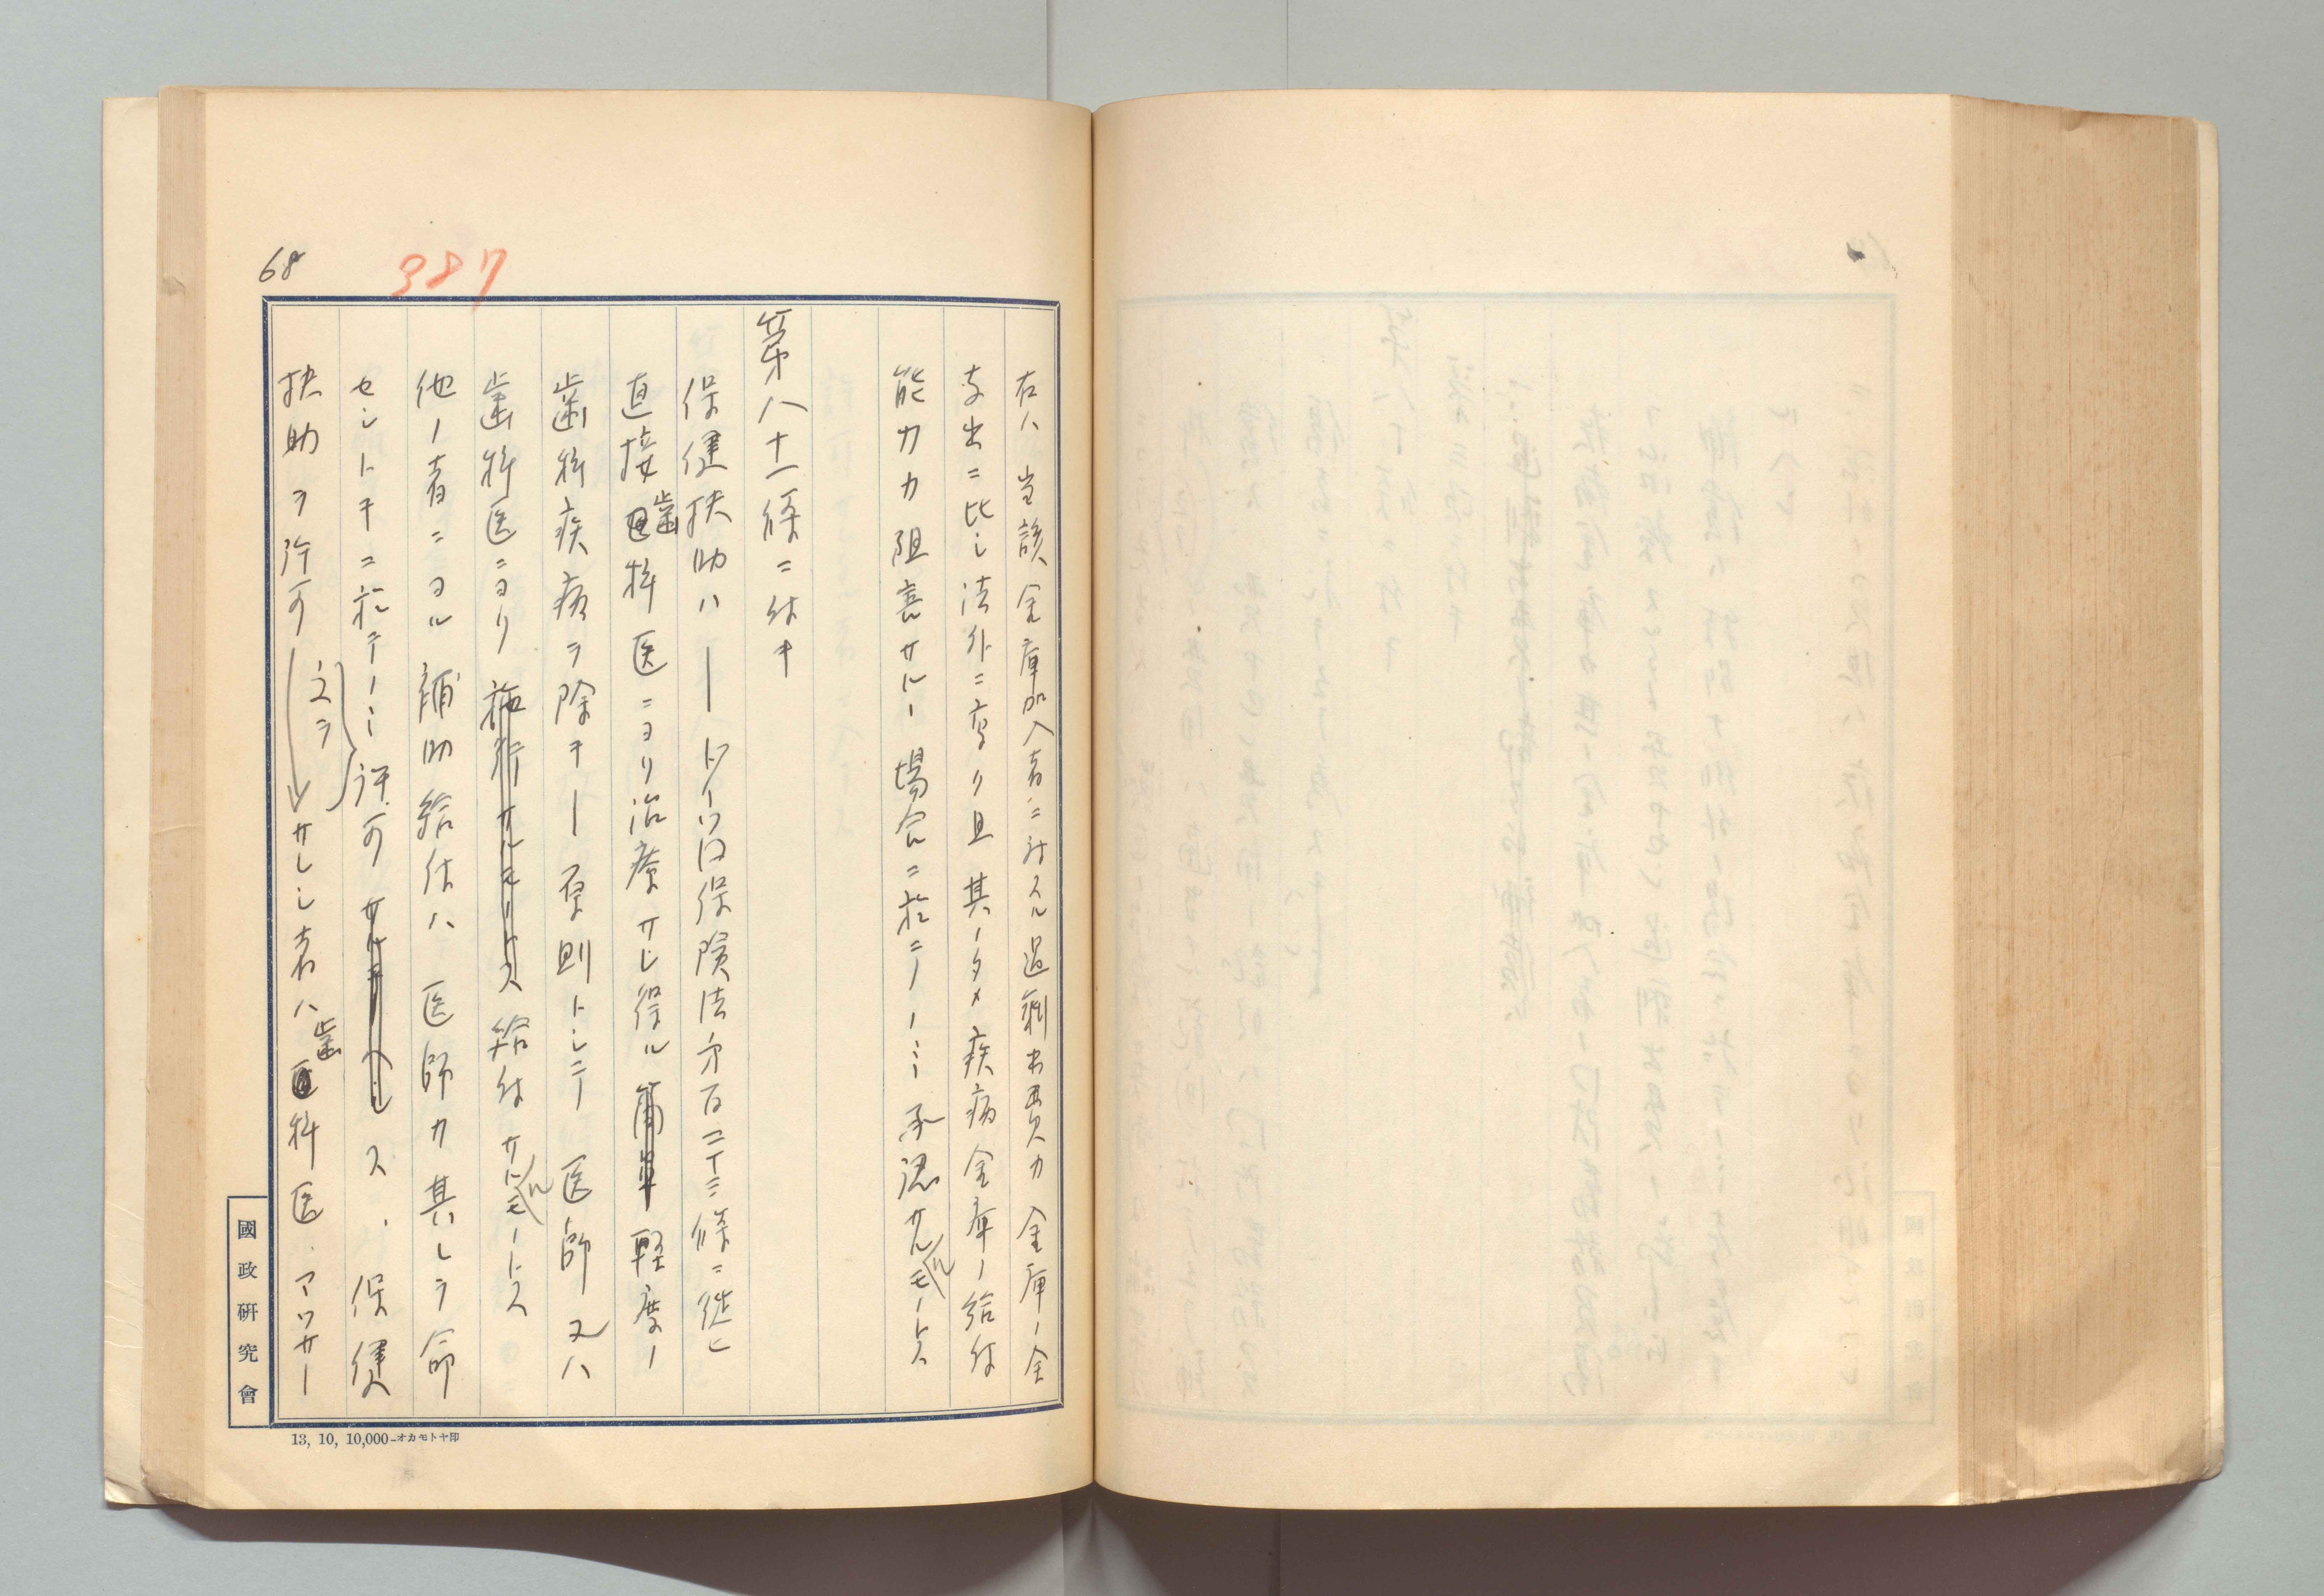 68
387
右ハ当該金庫加入者ニ対スル過剰出費カ金庫ノ全
支出ニ比シ法外ニ高ク且其ノタメ疾病金庫ノ給付
能力カ阻害サルル場合ニ於テノミ承認サルルモノトス
第八十一條ニ付キ
保健扶助ハ
保険法第百二十三條ニ従ヒ
直接歯科医ニヨリ治療サレ得ル軽度ノ
歯科疾病ヲ除キ 原則トシテ医師又ハ
歯科医ニヨリ給付サルルモノトス
他ノ者ニヨル補助給付ハ医師カ其レヲ命
セントキニ於テノミ許可ス、保健
扶助ヲ許可
サレシ者ハ歯科医
國政研究會
13, 10, 10,000-オカモトヤ印